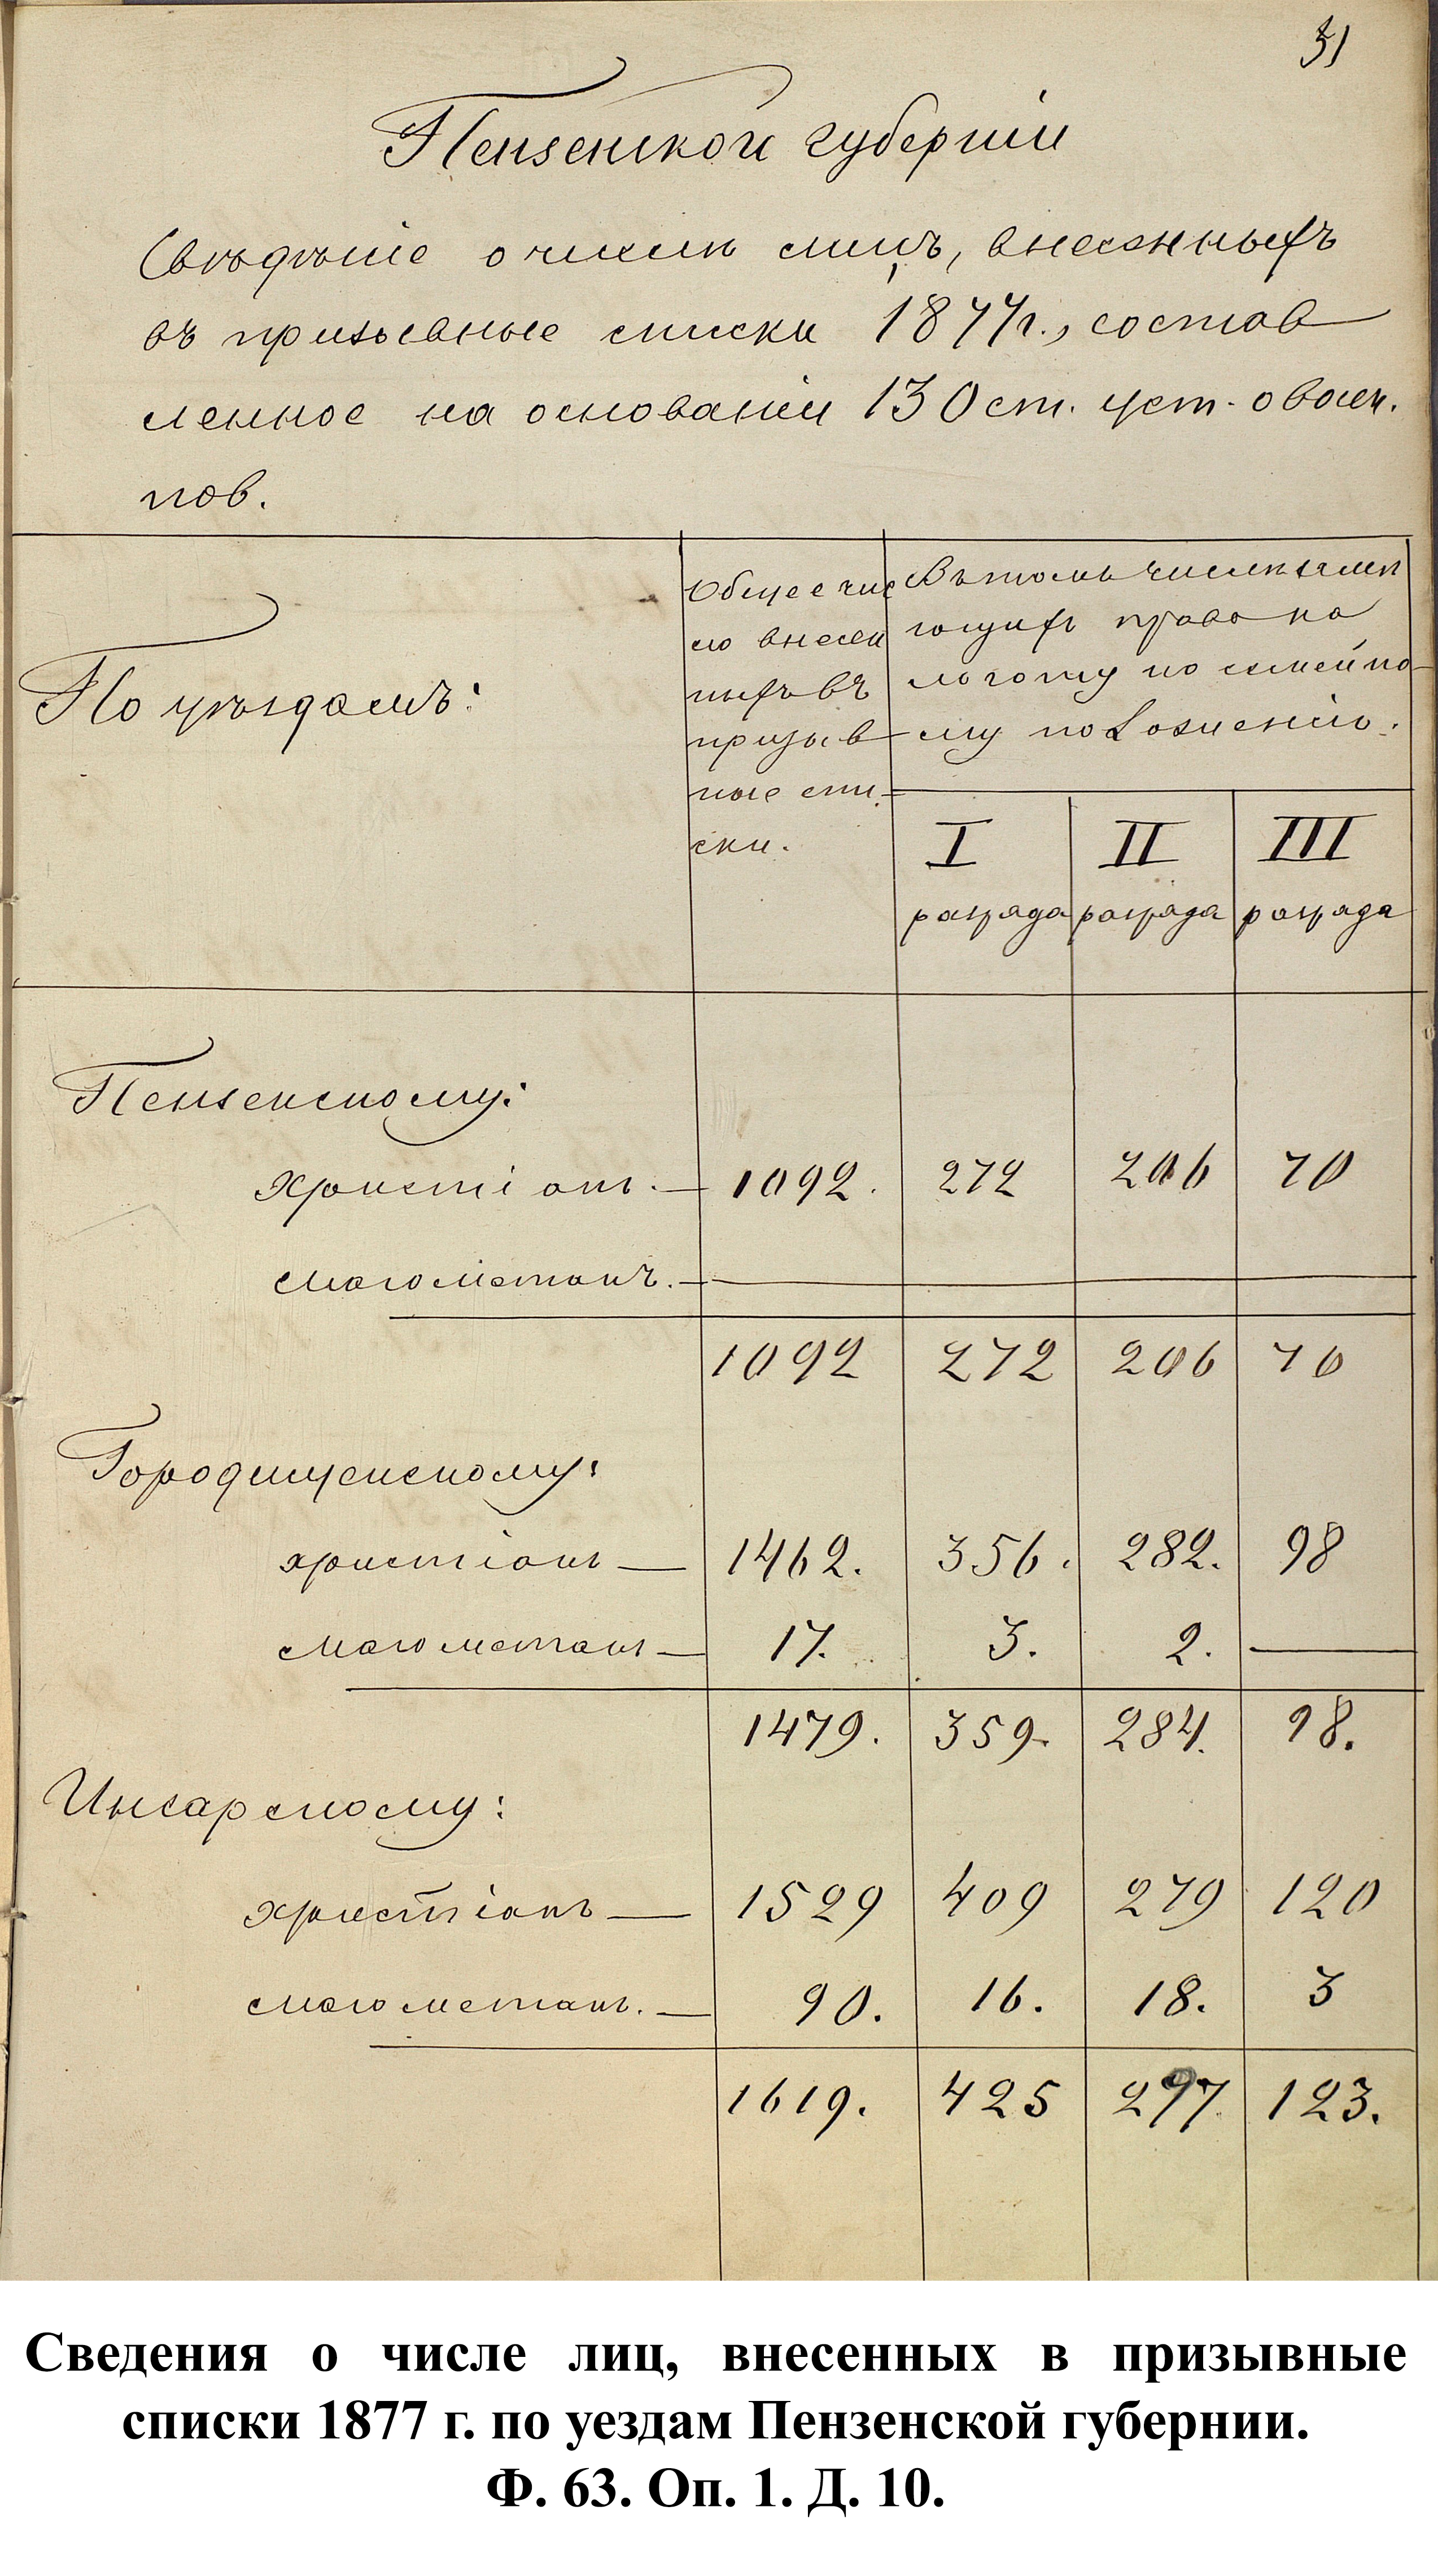 31
Пензенской губерніи
Свѣдѣніе о числѣ лицъ, внесенныхъ
въ призывные списки 1877 г., состав
ленное на основаніи 130 ст. уст. о воен.
пов.
По уѣздамъ:
Общее чис
ло внесен
ныхъ въ
призыв
ные спи-
ски.
Въ томъ числѣ имѣ
ющихъ право на
льготу по семейно-
му положенію.
I II III
разряда разряда разряда
Пензенскому:
христіанъ. — 1092. 272 206 70
магометанъ. —
1092 272 206 70
Городищенскому:
христіанъ — 1462. 356. 282. 98
магометанъ — 17. 3. 2. —
1479. 359. 284. 98.
Инсарскому:
христіанъ — 1529 409 279 120
магометанъ. — 90. 16. 18. 3
1619. 425 297 123.
Сведения о числе лиц, внесенных в призывные
списки 1877 г. по уездам Пензенской губернии.
Ф. 63. Оп. 1. Д. 10.